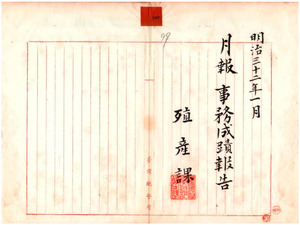 明治三十二年一月
月報 事務成蹟報告
殖產課
99